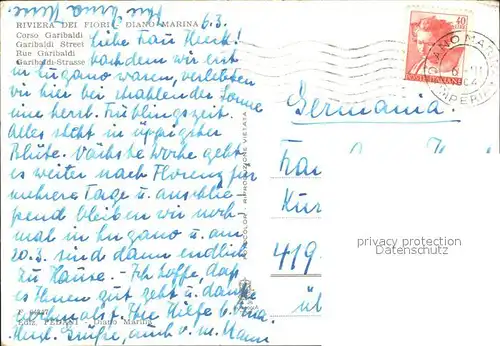 Ihre Irma Kine
RIVIERA DEI FIORI - DIANO MARINA
6.3.
Corso Garibaldi
Garibaldi Street
Rue Garibaldi
Garibaldi-Strasse
Liebe Frau Heck!
Nachdem wir erst
in Lugano waren, verlebten
wir hier bei strahlender Sonne
eine herrl. Frühlingszeit.
Alles steht in üppigster
Blüte. Nächste Woche geht
es weiter nach Florenz für
mehrere Tage u. anschlie-
ßend bleiben wir noch-
mal in Lugano u. am
20.3. sind dann endlich
zu Hause. - Ich hoffe, daß
es Ihnen gut geht u. danke
nochmals f. Ihre Hilfe b.
Herzl. Grüße, auch v. m. Mann
Ediz. - Diano Marina
RIPRODUZIONE VIETATA
40
POSTE ITALIANE
DIANO MARINA
IMPERIA
Germania
Frau
Kur
419
üb
privacy protection
Datenschutz